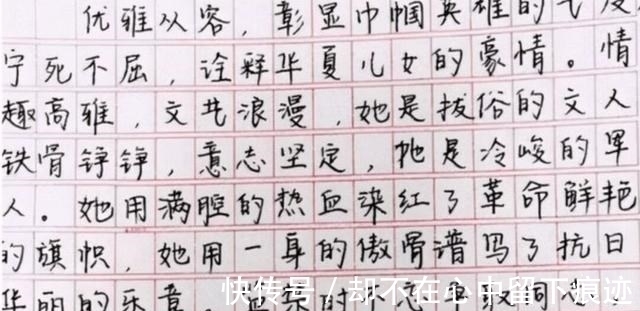 优雅从容，彰显巾帼英雄的气度
宁死不屈，诠释华夏儿女的豪情。情
趣高雅，文艺浪漫，她是拔俗的文人
铁骨铮铮，意志坚定，她是冷峻的军
人。她用满腔的热血染红了革命鲜艳
的旗帜，她用一身的傲骨谱写了抗日
华丽的乐章。
快传号 / 却不在心中留下痕迹